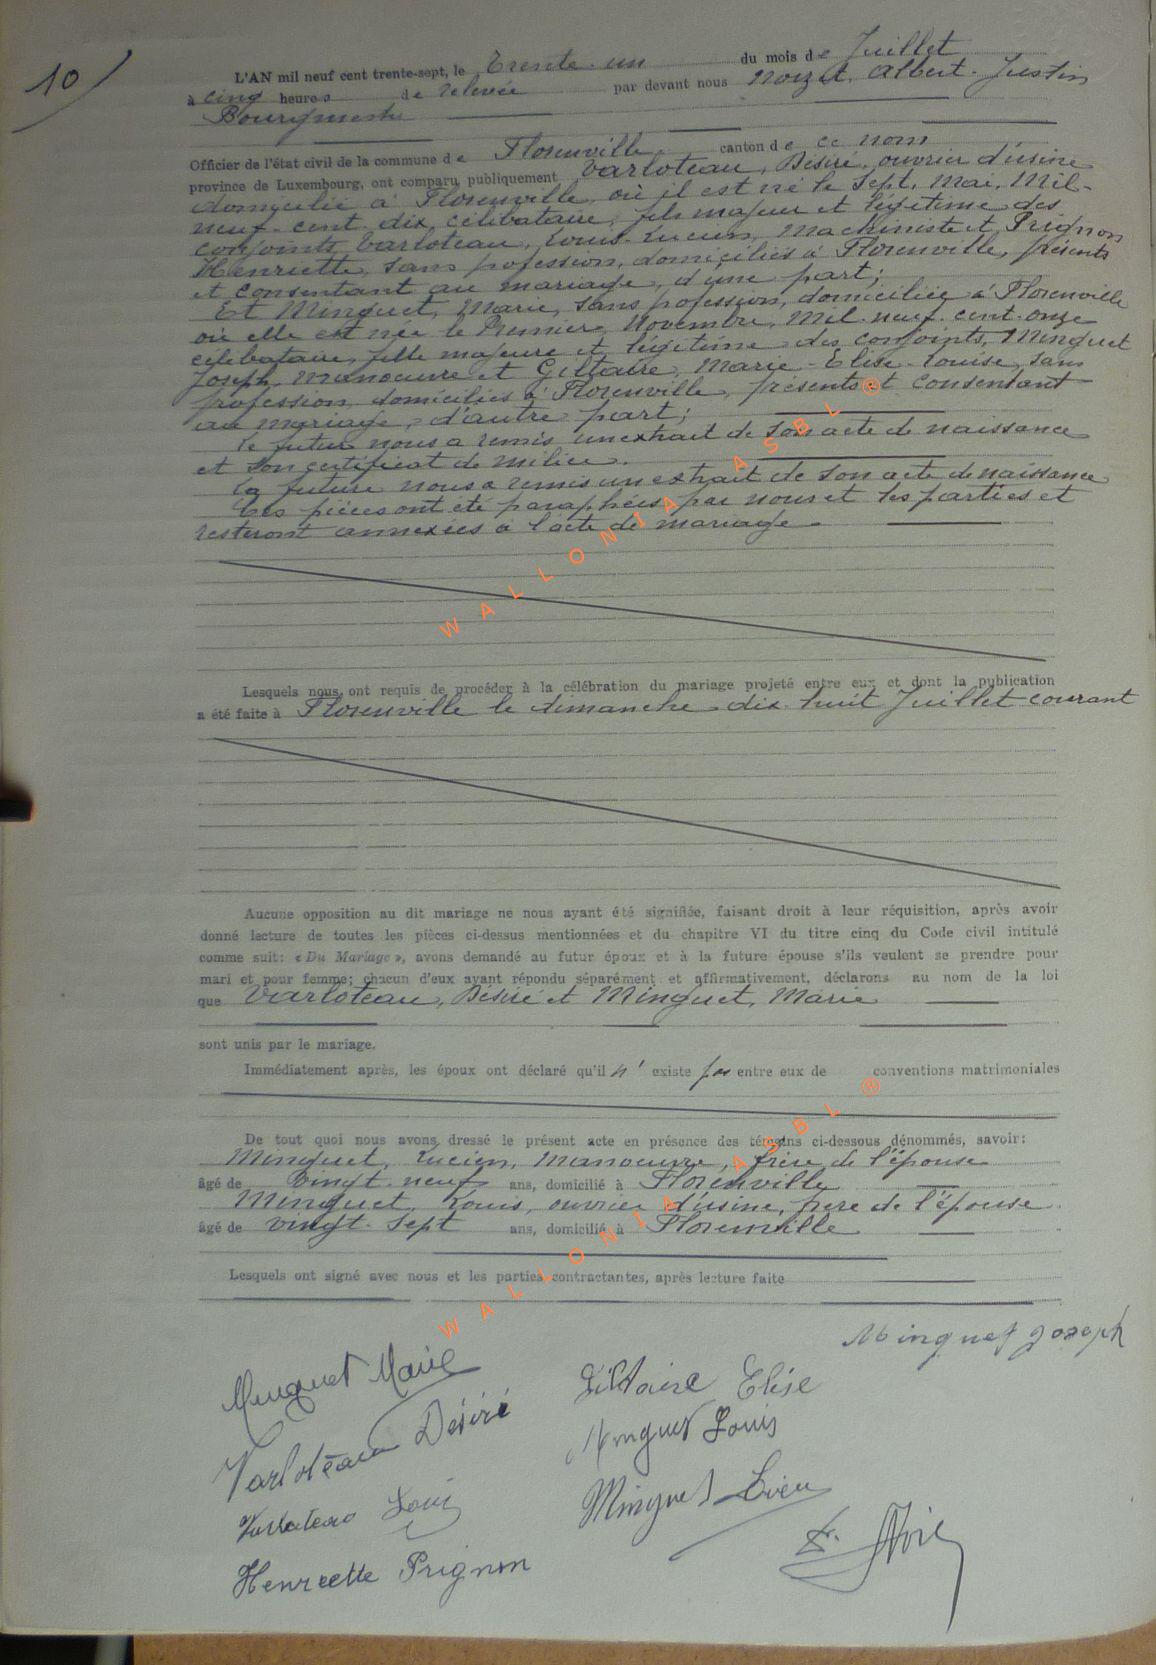 10
L'AN mil neuf cent trente-sept, le Trente-un du mois de Juillet
à cinq heures de relevée par devant nous Noizet Albert-Justin
Bourgmestre
Officier de l'état civil de la commune de Florenville canton de ce nom
province de Luxembourg, ont comparu publiquement Varloteau, Désiré, ouvrier d'usine
domicilié à Florenville, où il est né le Sept, Mai, Mil-
neuf-cent dix, célibataire, fils majeur et légitime des
conjoints Varloteau, Louis-Lucien, Machiniste et Prignon
Henriette, sans profession, domiciliés à Florenville, présents
et consentant au mariage, d'une part;
Et Minguet, Marie, sans profession, domiciliée à Florenville
où elle est née le Premier, Novembre, Mil-neuf-cent-onze
célibataire, fille majeure et légitime des conjoints, Minguet
Joseph, manoeuvre et Giltaire, Marie-Elise-Louise, sans
profession, domiciliés à Florenville, présents et consentant
au mariage, d'autre part;
Le futur nous a remis un extrait de son acte de naissance
et son certificat de milice.
La future nous a remis un extrait de son acte de naissance
Ces pièces ont été paraphées par nous et les parties et
resteront annexées à l'acte de mariage.
Lesquels nous ont requis de procéder à la célébration du mariage projeté entre eux et dont la publication
a été faite à Florenville le dimanche dix-huit Juillet courant
Aucune opposition au dit mariage ne nous ayant été signifiée, faisant droit à leur réquisition, après avoir
donné lecture de toutes les pièces ci-dessus mentionnées et du chapitre VI du titre cinq du Code civil intitulé
comme suit: « Du Mariage », avons demandé au futur époux et à la future épouse s'ils veulent se prendre pour
mari et pour femme; chacun d'eux ayant répondu séparément et affirmativement, déclarons au nom de la loi
que Varloteau, Désiré et Minguet, Marie
sont unis par le mariage.
Immédiatement après, les époux ont déclaré qu'il n' existe pas entre eux de conventions matrimoniales
De tout quoi nous avons dressé le présent acte en présence des témoins ci-dessous dénommés, savoir:
Minguet, Lucien, manoeuvre, frère de l'épouse
âgé de vingt-neuf ans, domicilié à Florenville
Minguet, Louis, ouvrier d'usine, frère de l'épouse
âgé de vingt-sept ans, domicilié à Florenville
Lesquels ont signé avec nous et les parties contractantes, après lecture faite
Minguet Joseph
Minguet Marie
Giltaire Elise
Varloteau Désiré
Minguet Louis
Varloteau Louis
Minguet
Henriette Prignon
WALLONIA ASBL ®
WALLONIA ASBL ®